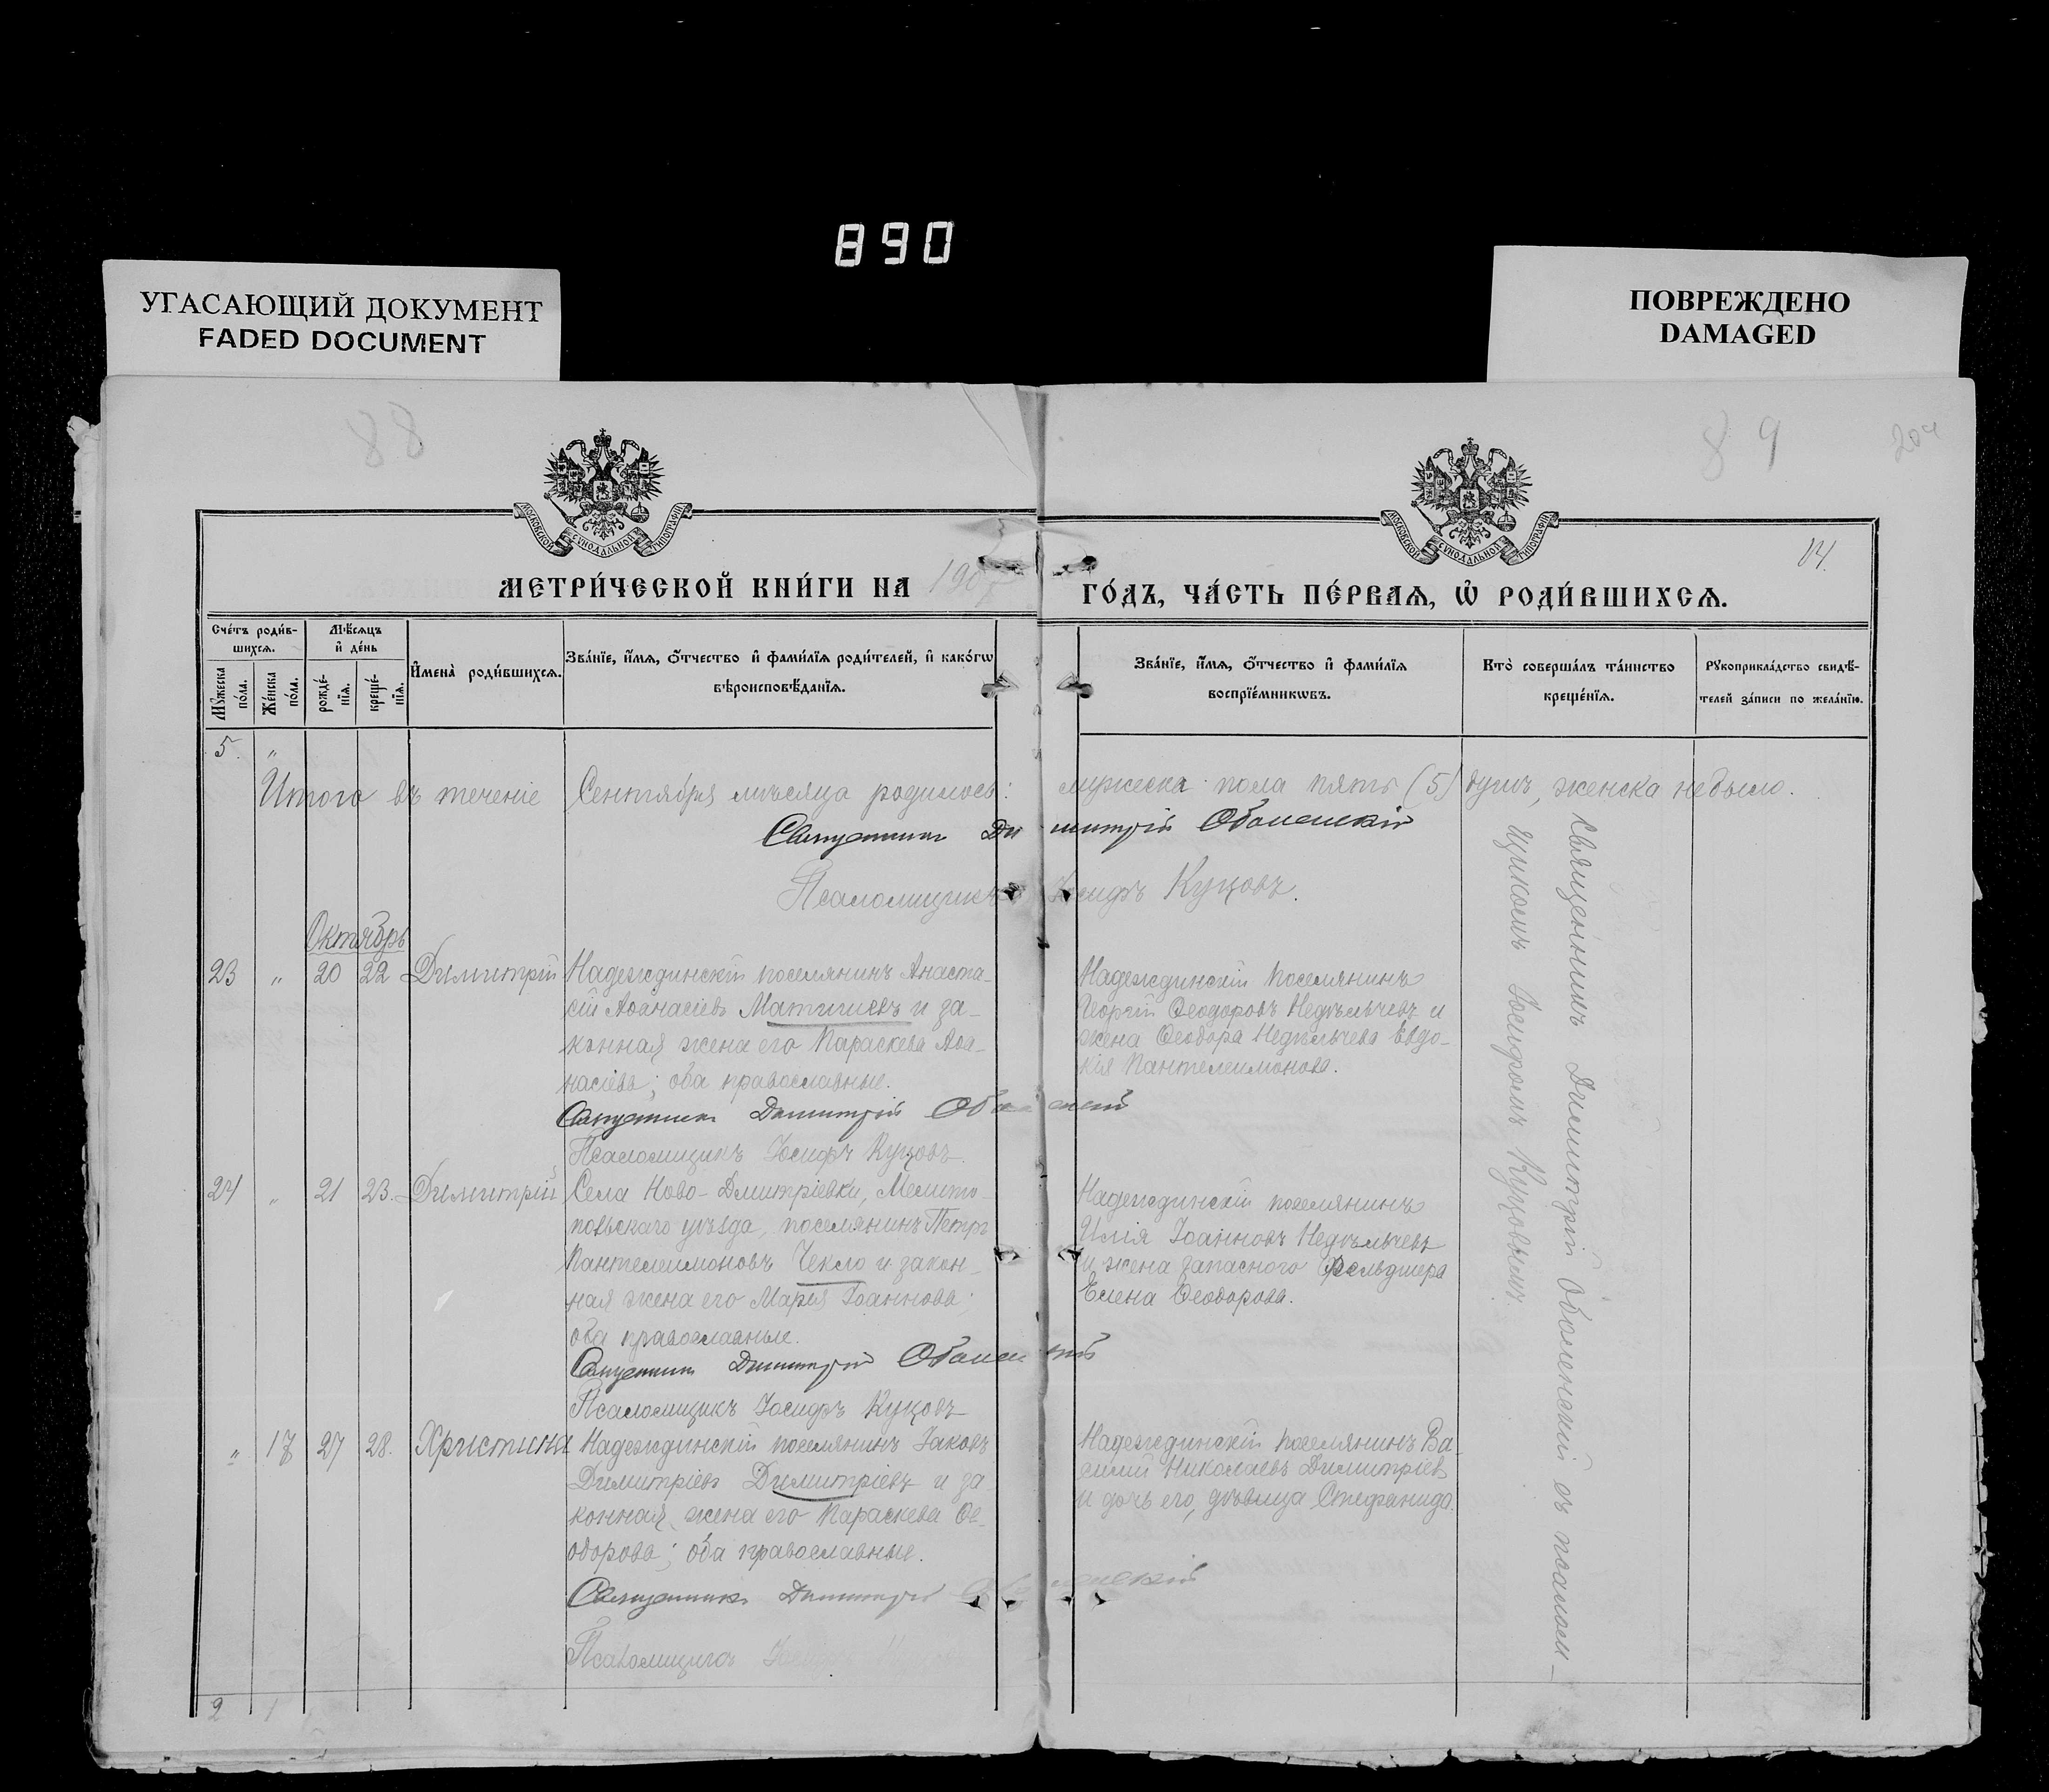 890
УГАСАЮЩИЙ ДОКУМЕНТ
FADED DOCUMENT
ПОВРЕЖДЕНО
DAMAGED
88
89
204
МОСКОВСКОЙ СѴНОДАЛЬНОЙ ТИПОГРАФІИ
МОСКОВСКОЙ СѴНОДАЛЬНОЙ ТИПОГРАФІИ
14.
МЕТРИ́ЧЕСКОЙ КНИ́ГИ НА 190
ГО́ДЪ, ЧА́СТЬ ПЕ́РВАѦ, Ѡ҆ РОДИ́ВШИХСѦ.
Сче́тъ роди́в-
шихсѧ.
Мꙋ́жеска
по́ла.
Же́нска
по́ла.
Мѣ́сѧцъ
и҆ де́нь
рожде́-
нїѧ.
креще́-
нїѧ.
И҆мена̀ роди́вшихсѧ.
Зва́нїе, и҆́мѧ, ѻ҆́тчество и҆ фами́лїѧ роди́телей, и҆ како́гѡ
вѣроисповѣ́данїѧ.
Зва́нїе, и҆́мѧ, ѻ҆́тчество и҆ фами́лїѧ
воспрїе́мникѡвъ.
Кто̀ соверша́лъ та́инство
креще́нїѧ.
Рꙋкоприкла́дство свидѣ́-
телей за́писи по жела́нїю.
5. "
Итого въ теченіе Сентября мѣсяца родилось: мужеска пола пять (5) душъ, женска не было.
Священникъ Димитрій Оболенскій
Псаломщикъ Іосифъ Куцовъ.
Октябрь
23 " 20 22 Димитрій
Надеждинскій поселянинъ Анаста-
сій Аѳанасіевъ Матишевъ и за-
конная жена его Параскева Аѳа-
насіева; оба православные.
Священникъ Димитрій Оболенскій
Псаломщикъ Іосифъ Куцовъ.
Надеждинскій поселянинъ
Георгій Ѳеодоровъ Недѣльчевъ и
жена Ѳеодора Недѣльчева Евдо-
кія Пантелеимонова.
24 " 21 23. Димитрій
Села Ново-Дмитріевки, Мелито-
польскаго уѣзда, поселянинъ Петръ
Пантелеимоновъ Чекло и закон-
ная жена его Марія Іоаннова;
оба православные.
Священникъ Димитрій Оболенскій
Псаломщикъ Іосифъ Куцовъ
Надеждинскій поселянинъ
Илія Іоанновъ Недѣльчевъ
и жена запасного фельдшера
Елена Ѳеодорова.
" 17 27 28. Христина
Надеждинскій поселянинъ Іаковъ
Димитріевъ Димитріевъ и за-
конная жена его Параскева Ѳе-
одорова; оба православные.
Священникъ Димитрій Оболенскій
Псаломщикъ
Надеждинскій поселянинъ Ва-
силій Николаевъ Димитріевъ
и дочь его, дѣвица Стефанида.
Священникъ Димитрій Оболенскій съ псалом-
щикомъ Іосифомъ Куцовымъ.
2 1